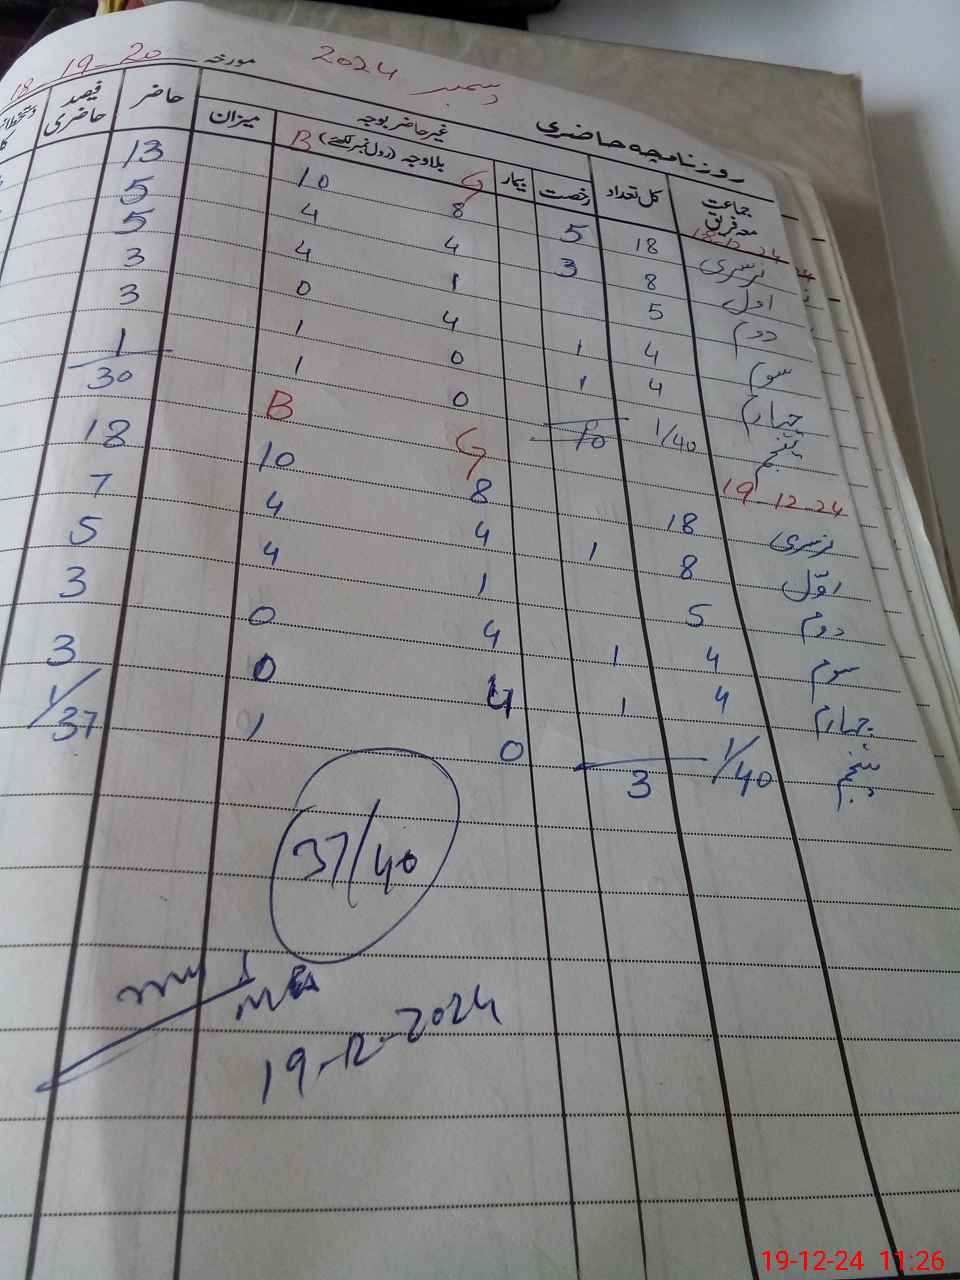 روزنامچہ حاضری دسمبر 2024 مورخہ 18-19-20
جماعت معہ فریق کل تعداد رخصت بیمار غیر حاضر بوجہ میزان حاضر فیصد حاضری
بلاوجہ (رول نمبر لکھیے) G B
18-12-24
نرسری 18 5 8 10 13
اول 8 3 4 4 5
دوم 5 1 4 5
سوم 4 1 4 0 3
چہارم 4 1 0 1 3
پنجم 1/40 10 0 1 1/30
19-12-24 G B
نرسری 18 8 10 18
اوّل 8 1 4 4 7
دوم 5 1 4 5
سوم 4 1 4 0 3
چہارم 4 1 4 0 3
پنجم 1/40 3 0 1 1/37
37/40
19-12-2024
19-12-24 11:26